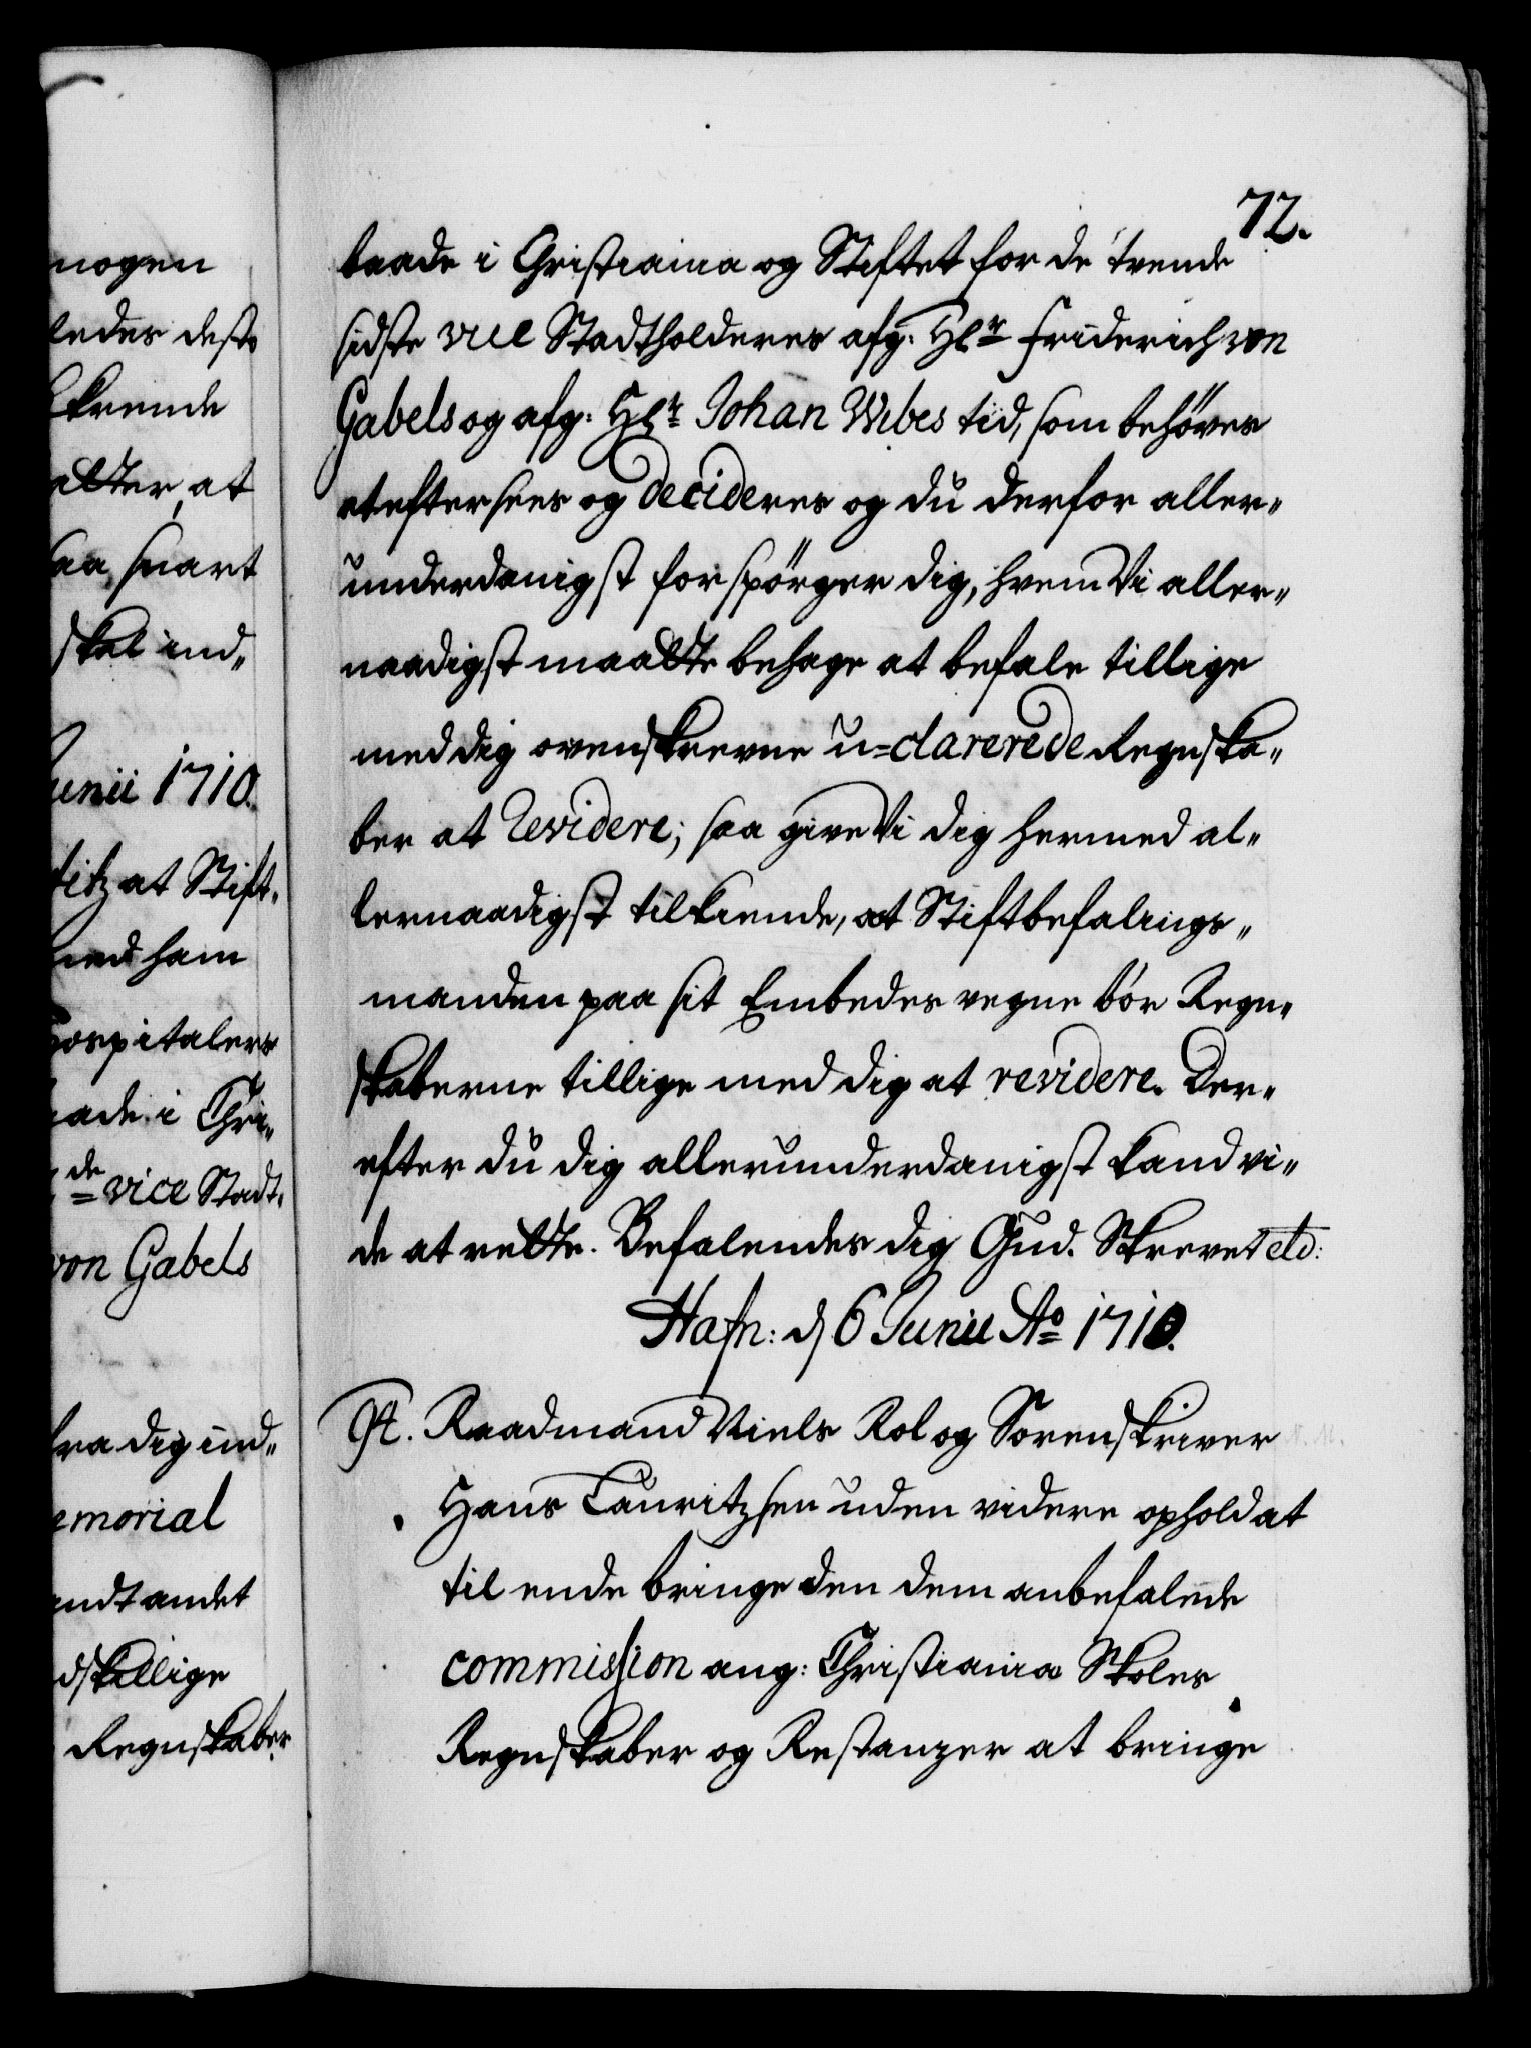 nogen
ledes desto
krende
eller, at
saa snart
skal ind„
Junii 1710.
titz at Stift„
med ham
Hospitalers
baade i Chri„
de vice Stadt„
von Gabels
fra dig ind„
emorial
andt andet
dskillige
Regnskaber
72.
baade i Christiania og Stiftet for de tvende
sidste vice Stadtholderes afg: Hl:r Friderich von
Gabels og afg: Hr: Johan Wibes tid, som behöves
at eftersees og decideres og du derfor aller„
underdanigst forspörger dig, hvem Vi aller„
naadigst maatte behage at befale tillige
med dig ovenskrevne u=clarerede Regnska„
ber at revidere; saa give Vi dig hermed al„
lernaadigst tilkiende, at Stiftbefalings„
manden paa sit Embedes vegne bör Regn„
skaberne tillige med dig at revidere. Der„
efter du dig allerunderdanigst kand vi„
de at rette. Befalendes dig Gud. Skrevet etc:
Hafn: d 6 Junii Ao 1710.
Gt. Raadmand Niels Rol og Sorenskriver
Hans Lauritzsen uden videre ophold at
til ende bringe den dem anbefalede
commission ang: Christiania Skoles
Regnskaber og Restanzer at bringe